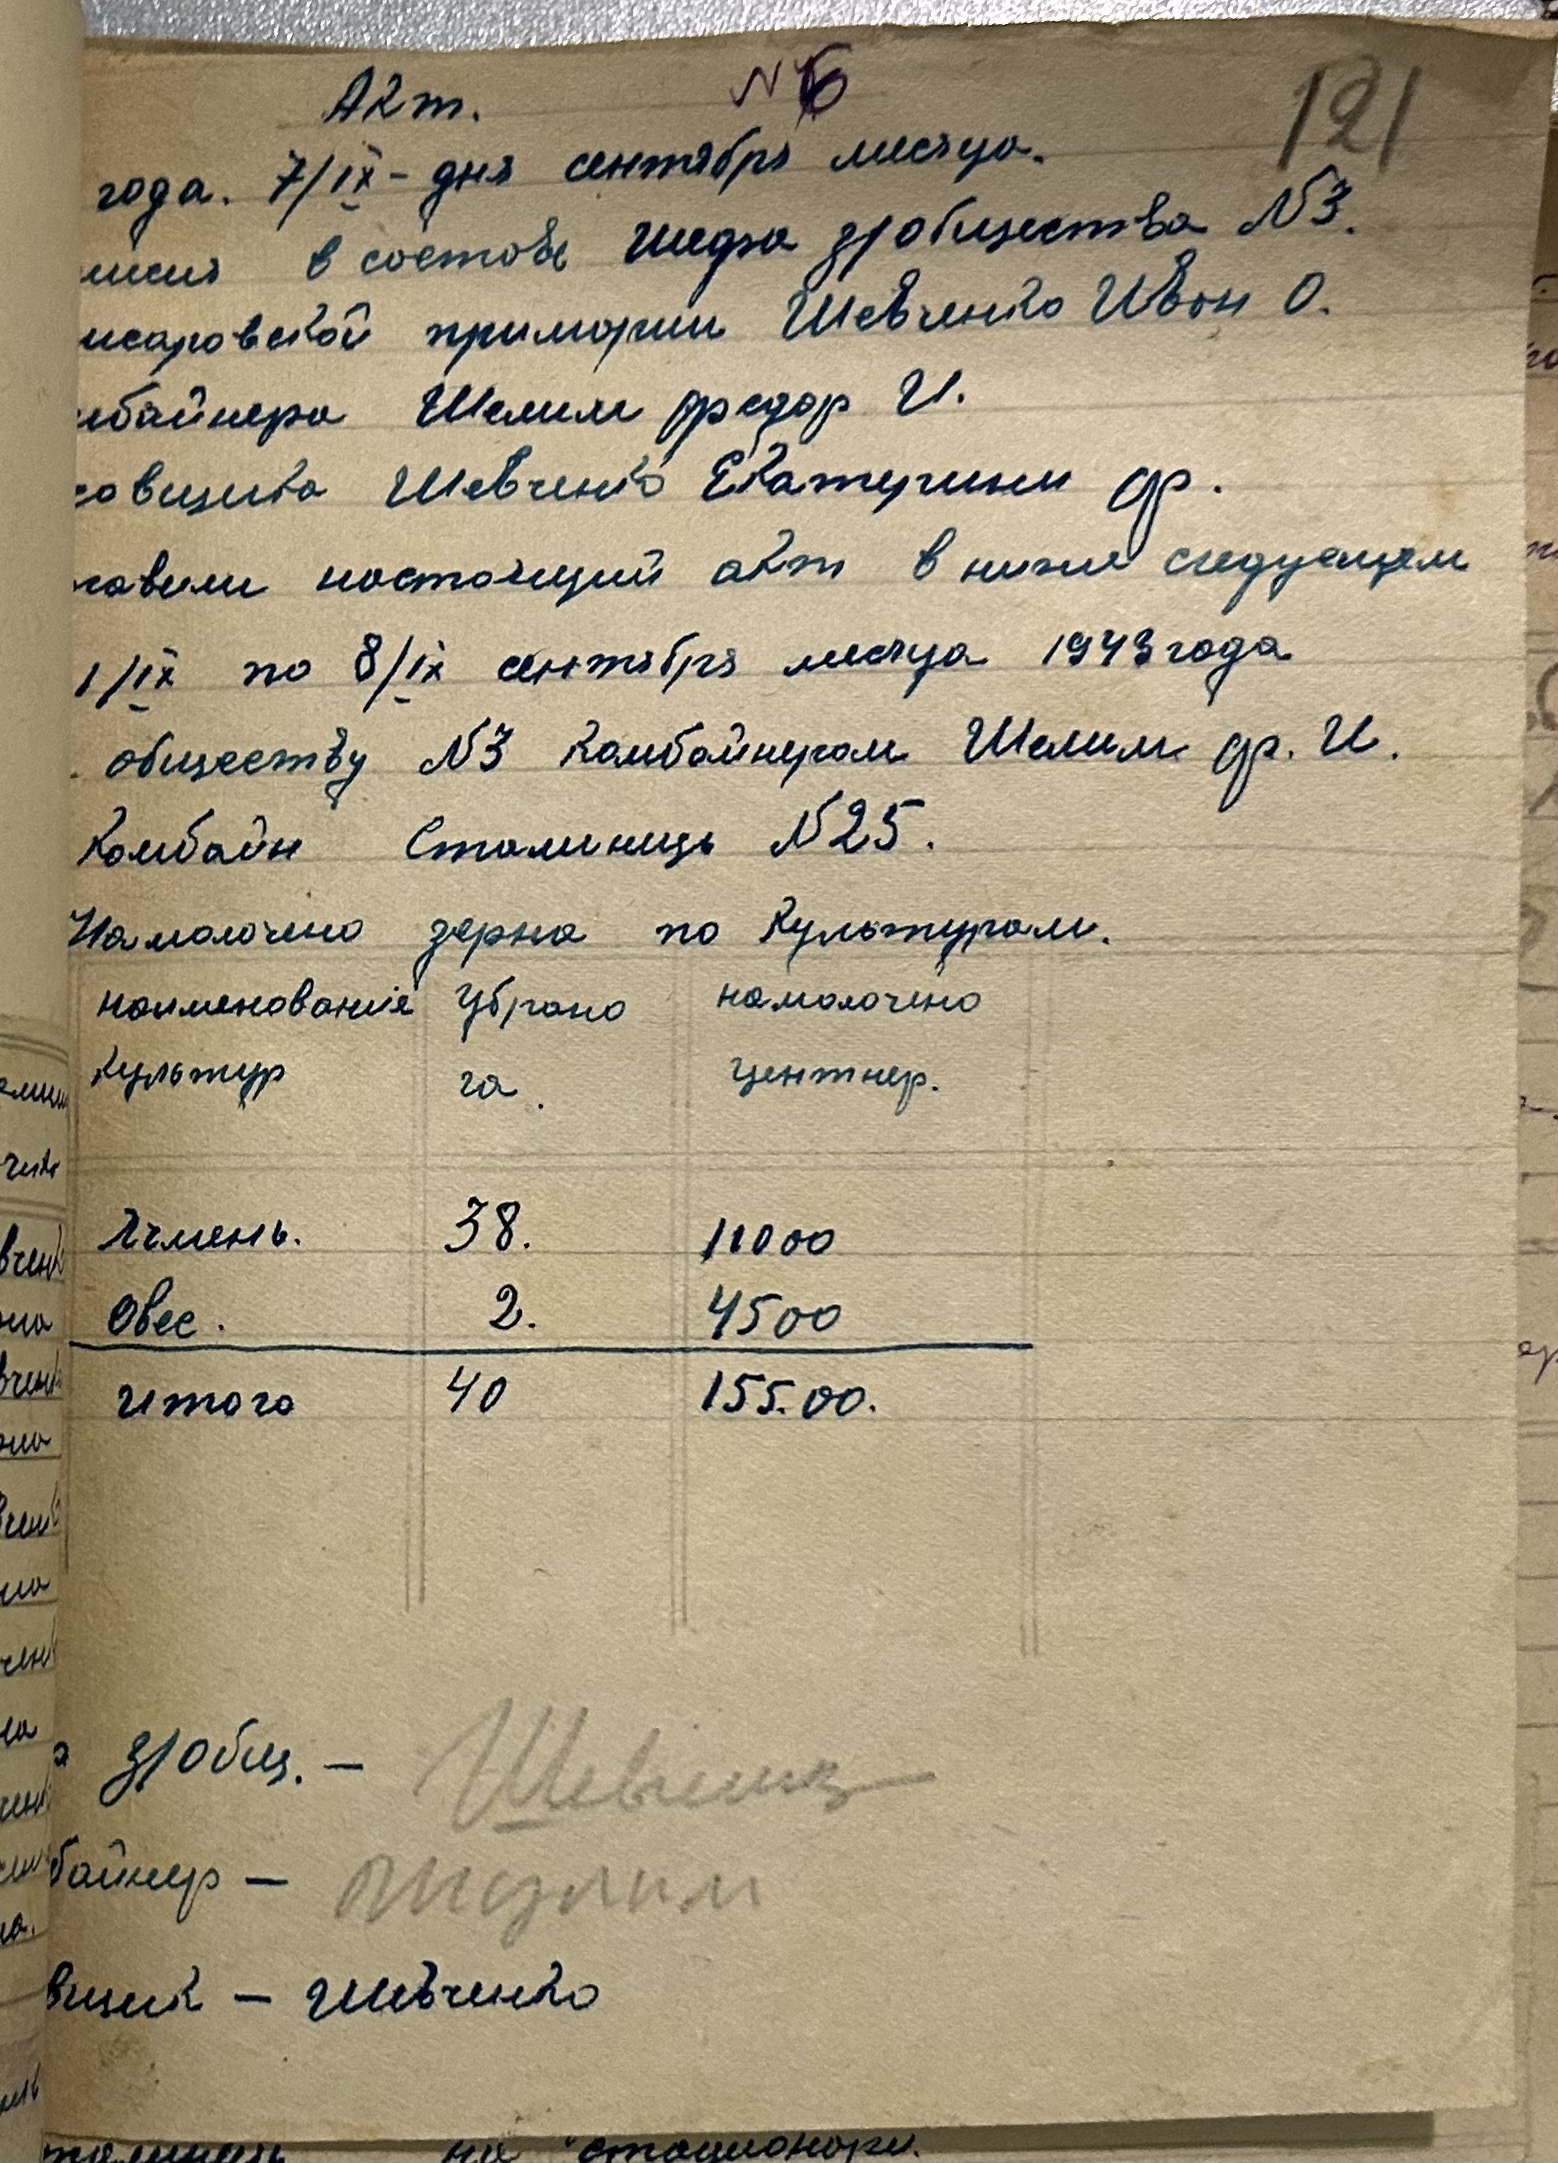 Акт. №6
121
года. 7/IX - дня сентября месяца.
миссия в состове Шефа з/общества №3.
исаровской примэрии Шевченко Ивон О.
мбайнера Шелим Федор И.
совщика Шевченко Екатерини Ф.
тавили настоящий акт в ниже следующем
1/IX по 8/IX сентября месяца 1943 года
обществу №3 Комбайнером Шелим Ф. И.
Комбайн Сталинець №25.
Намолочено зерна по Культурам.
наименование убрано намолочено
Культур га. центнер.
Ячмень. 38. 11000
Овес. 2. 4500
Итого 40 155.00.
з/общ. – Шевченко
байнер – Шелим
вщик – Шевченко
на стационари.